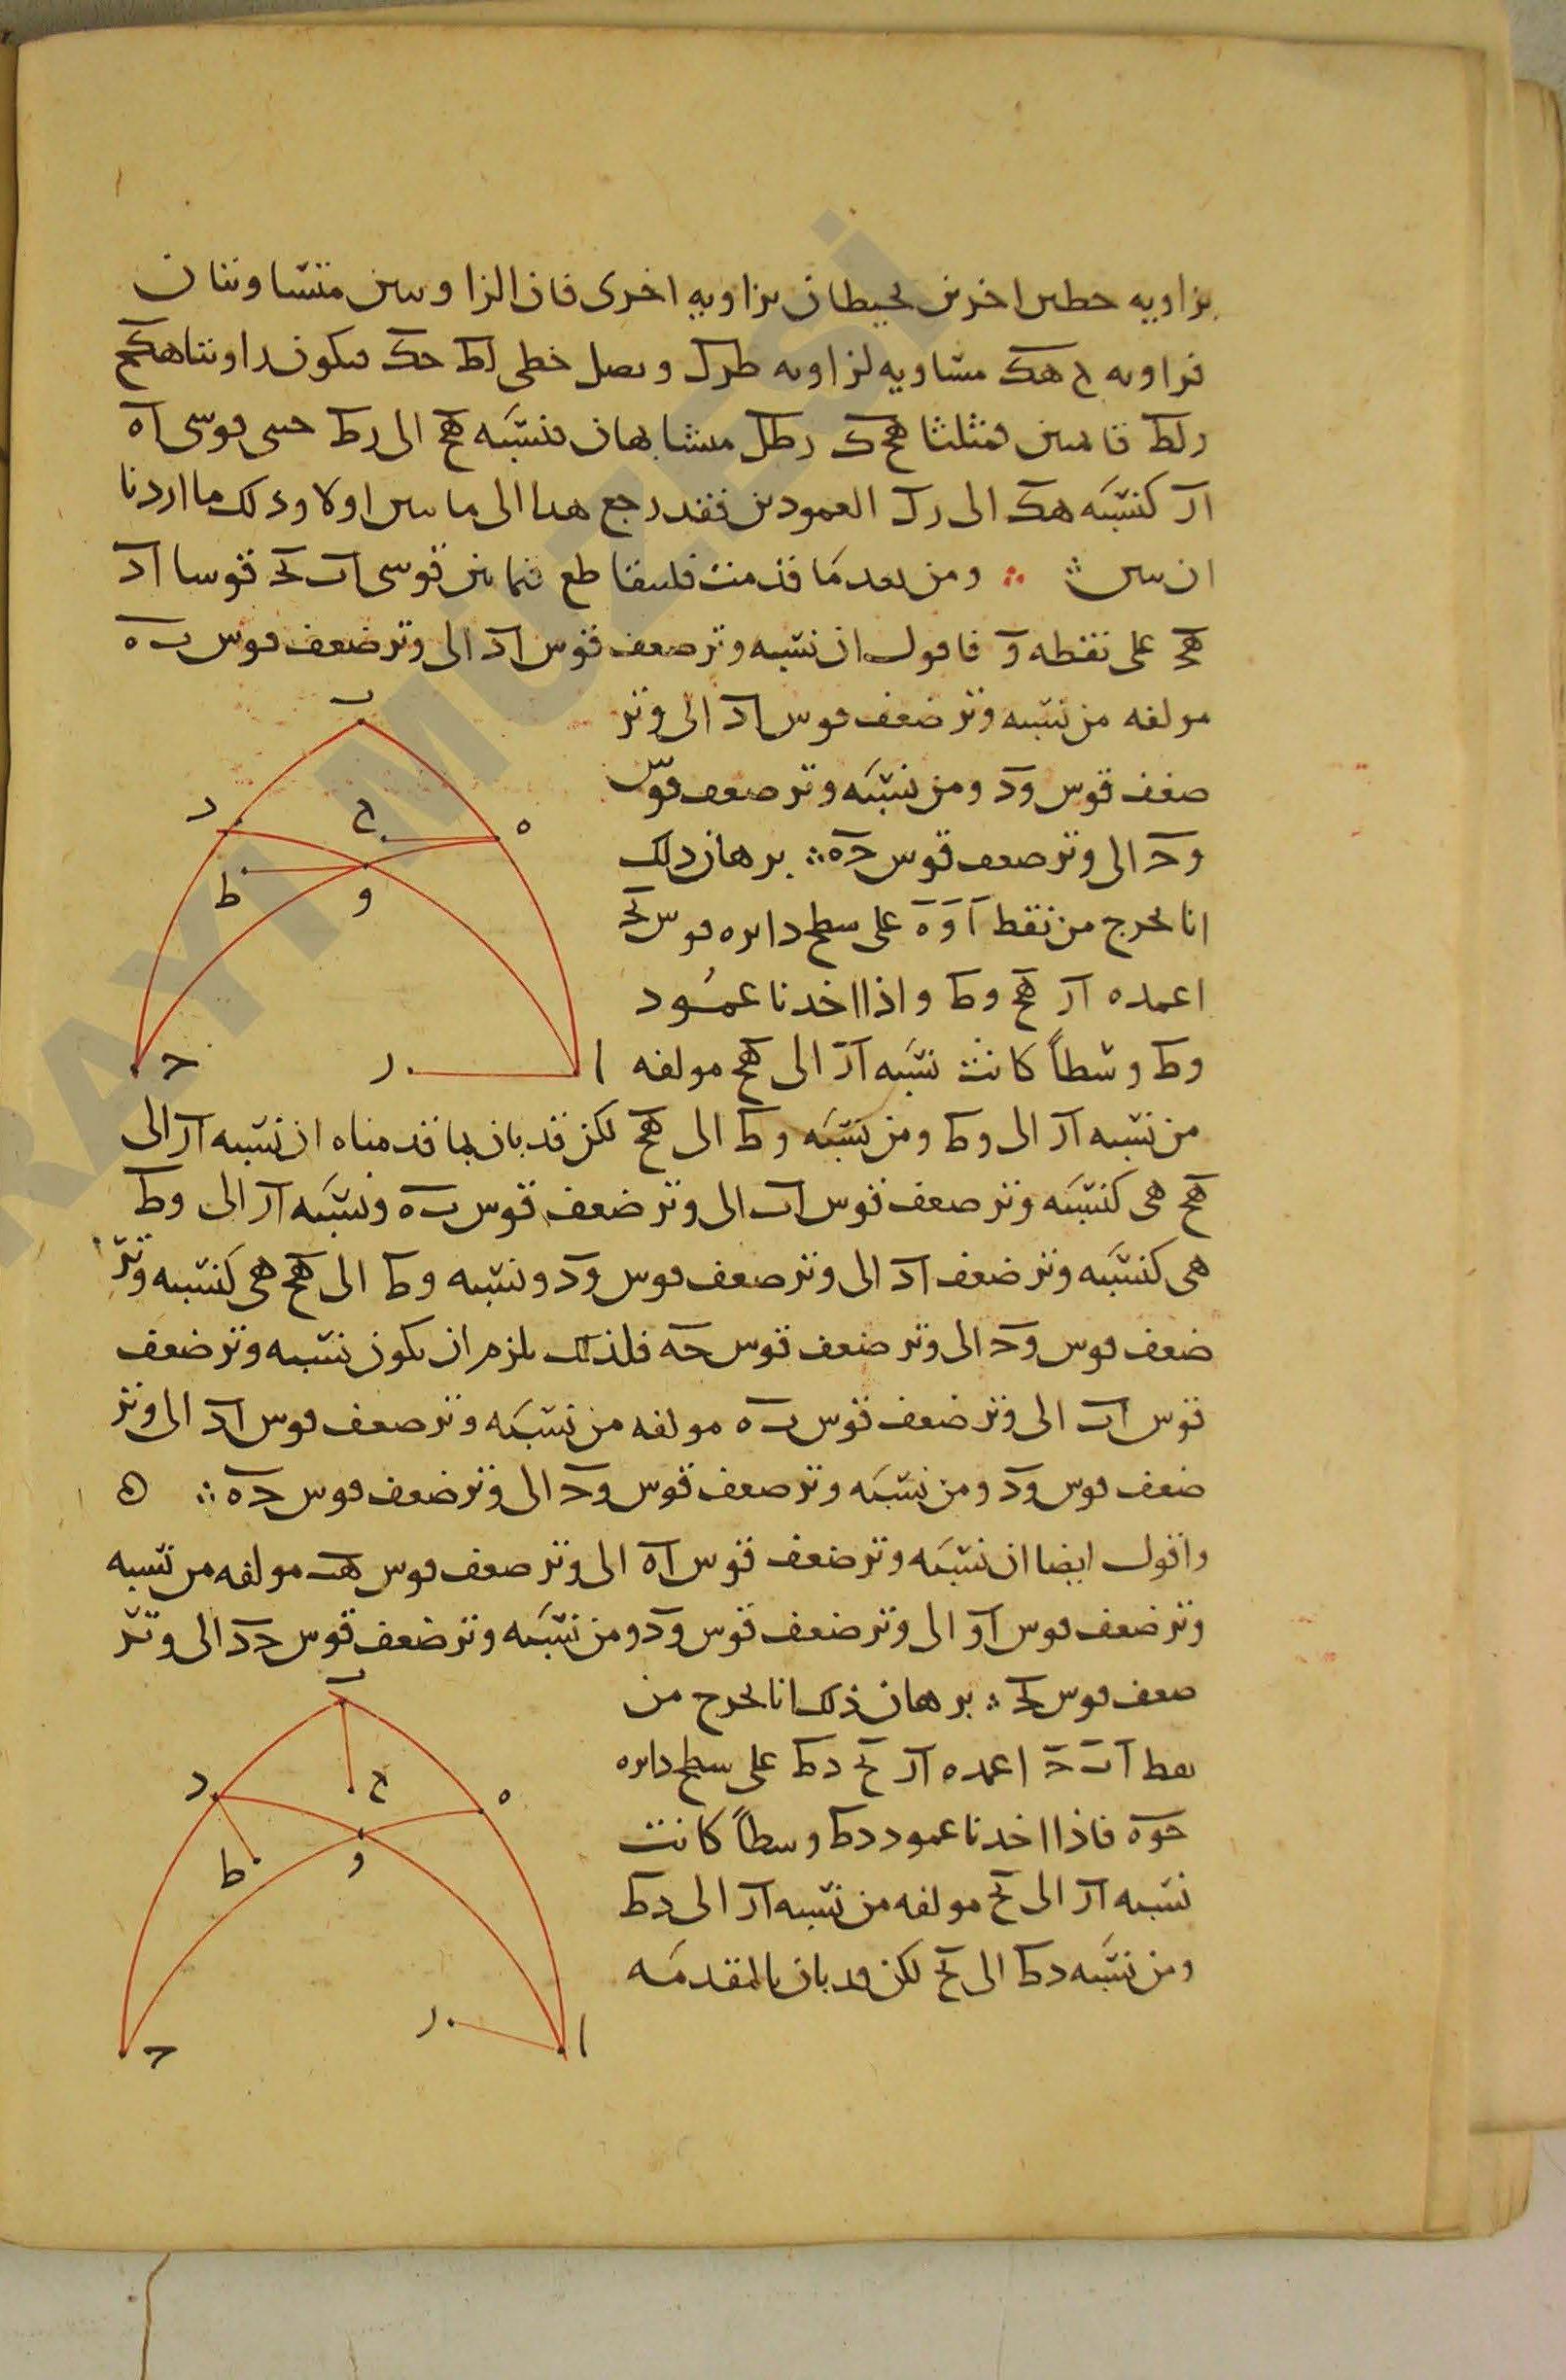 بزاويه خطين اخرين يحيطان بزاويه اخرى فان الزاويتين متساويتان
فزاويه ح هك مساويه لزاويه ط رل ونصل خطى لط حك فيكون زاويتا هكح
رلط قائمتين فمثلثا هح ك رطل متشابهان فنسبه هح الى رط جيبى قوسى اه
ار كنسبه هك الى رل العمودين فقد رجع هذا الى ما بين اولا وذلك ما اردنا
ان نبين ومن بعد ما قدمت فليتقاطع فيما بين قوسى اب بج قوسا اد
هج على نقطه و فاقول ان نسبه وتر ضعف قوس اد الى وتر ضعف قوس ب ه
مولفه من نسبه وتر ضعف قوس اد الى وتر
ضعف قوس ود ومن نسبه وتر ضعف قوس
وج الى وتر ضعف قوس ج ه برهان ذلك
انا نخرج من نقط ا و ه على سطح دائره قوس بج
اعمده ار هح وط واذا اخذنا عمود
وط وسطاً كانت نسبه ار الى هح مولفه
من نسبه ار الى وط ومن نسبه وط الى هح لكن قد بان بما قدمناه ان نسبه ار الى
هح هى كنسبه وتر ضعف قوس اب الى وتر ضعف قوس ب ه ونسبه ار الى وط
هى كنسبه وتر ضعف اد الى وتر ضعف قوس ود ونسبه وط الى هح هى كنسبه وتر
ضعف قوس وج الى وتر ضعف قوس جه فلذلك يلزم ان يكون نسبه وتر ضعف
قوس اب الى وتر ضعف قوس ب ه مولفه من نسبه وتر ضعف قوس اد الى وتر
ضعف قوس ود ومن نسبه وتر ضعف قوس وج الى وتر ضعف قوس ج ه ه
واقول ايضا ان نسبه وتر ضعف قوس اه الى وتر ضعف قوس هب مولفه من نسبه
وتر ضعف قوس او الى وتر ضعف قوس ود ومن نسبه وتر ضعف قوس جد الى وتر
ضعف قوس بج برهان ذلك انا نخرج من
نقط ا ب د اعمده ار بح دط على سطح دائره
جوه فاذا اخذنا عمود دط وسطاً كانت
نسبه ار الى بح مولفه من نسبه ار الى دط
ومن نسبه دط الى بح لكن قد بان بالمقدمه
ب
د
ح
ه
ط
و
ج
ر
ا
ب
د
ح
ه
ط
و
ج
ر
ا
RAYI MÜZESİ